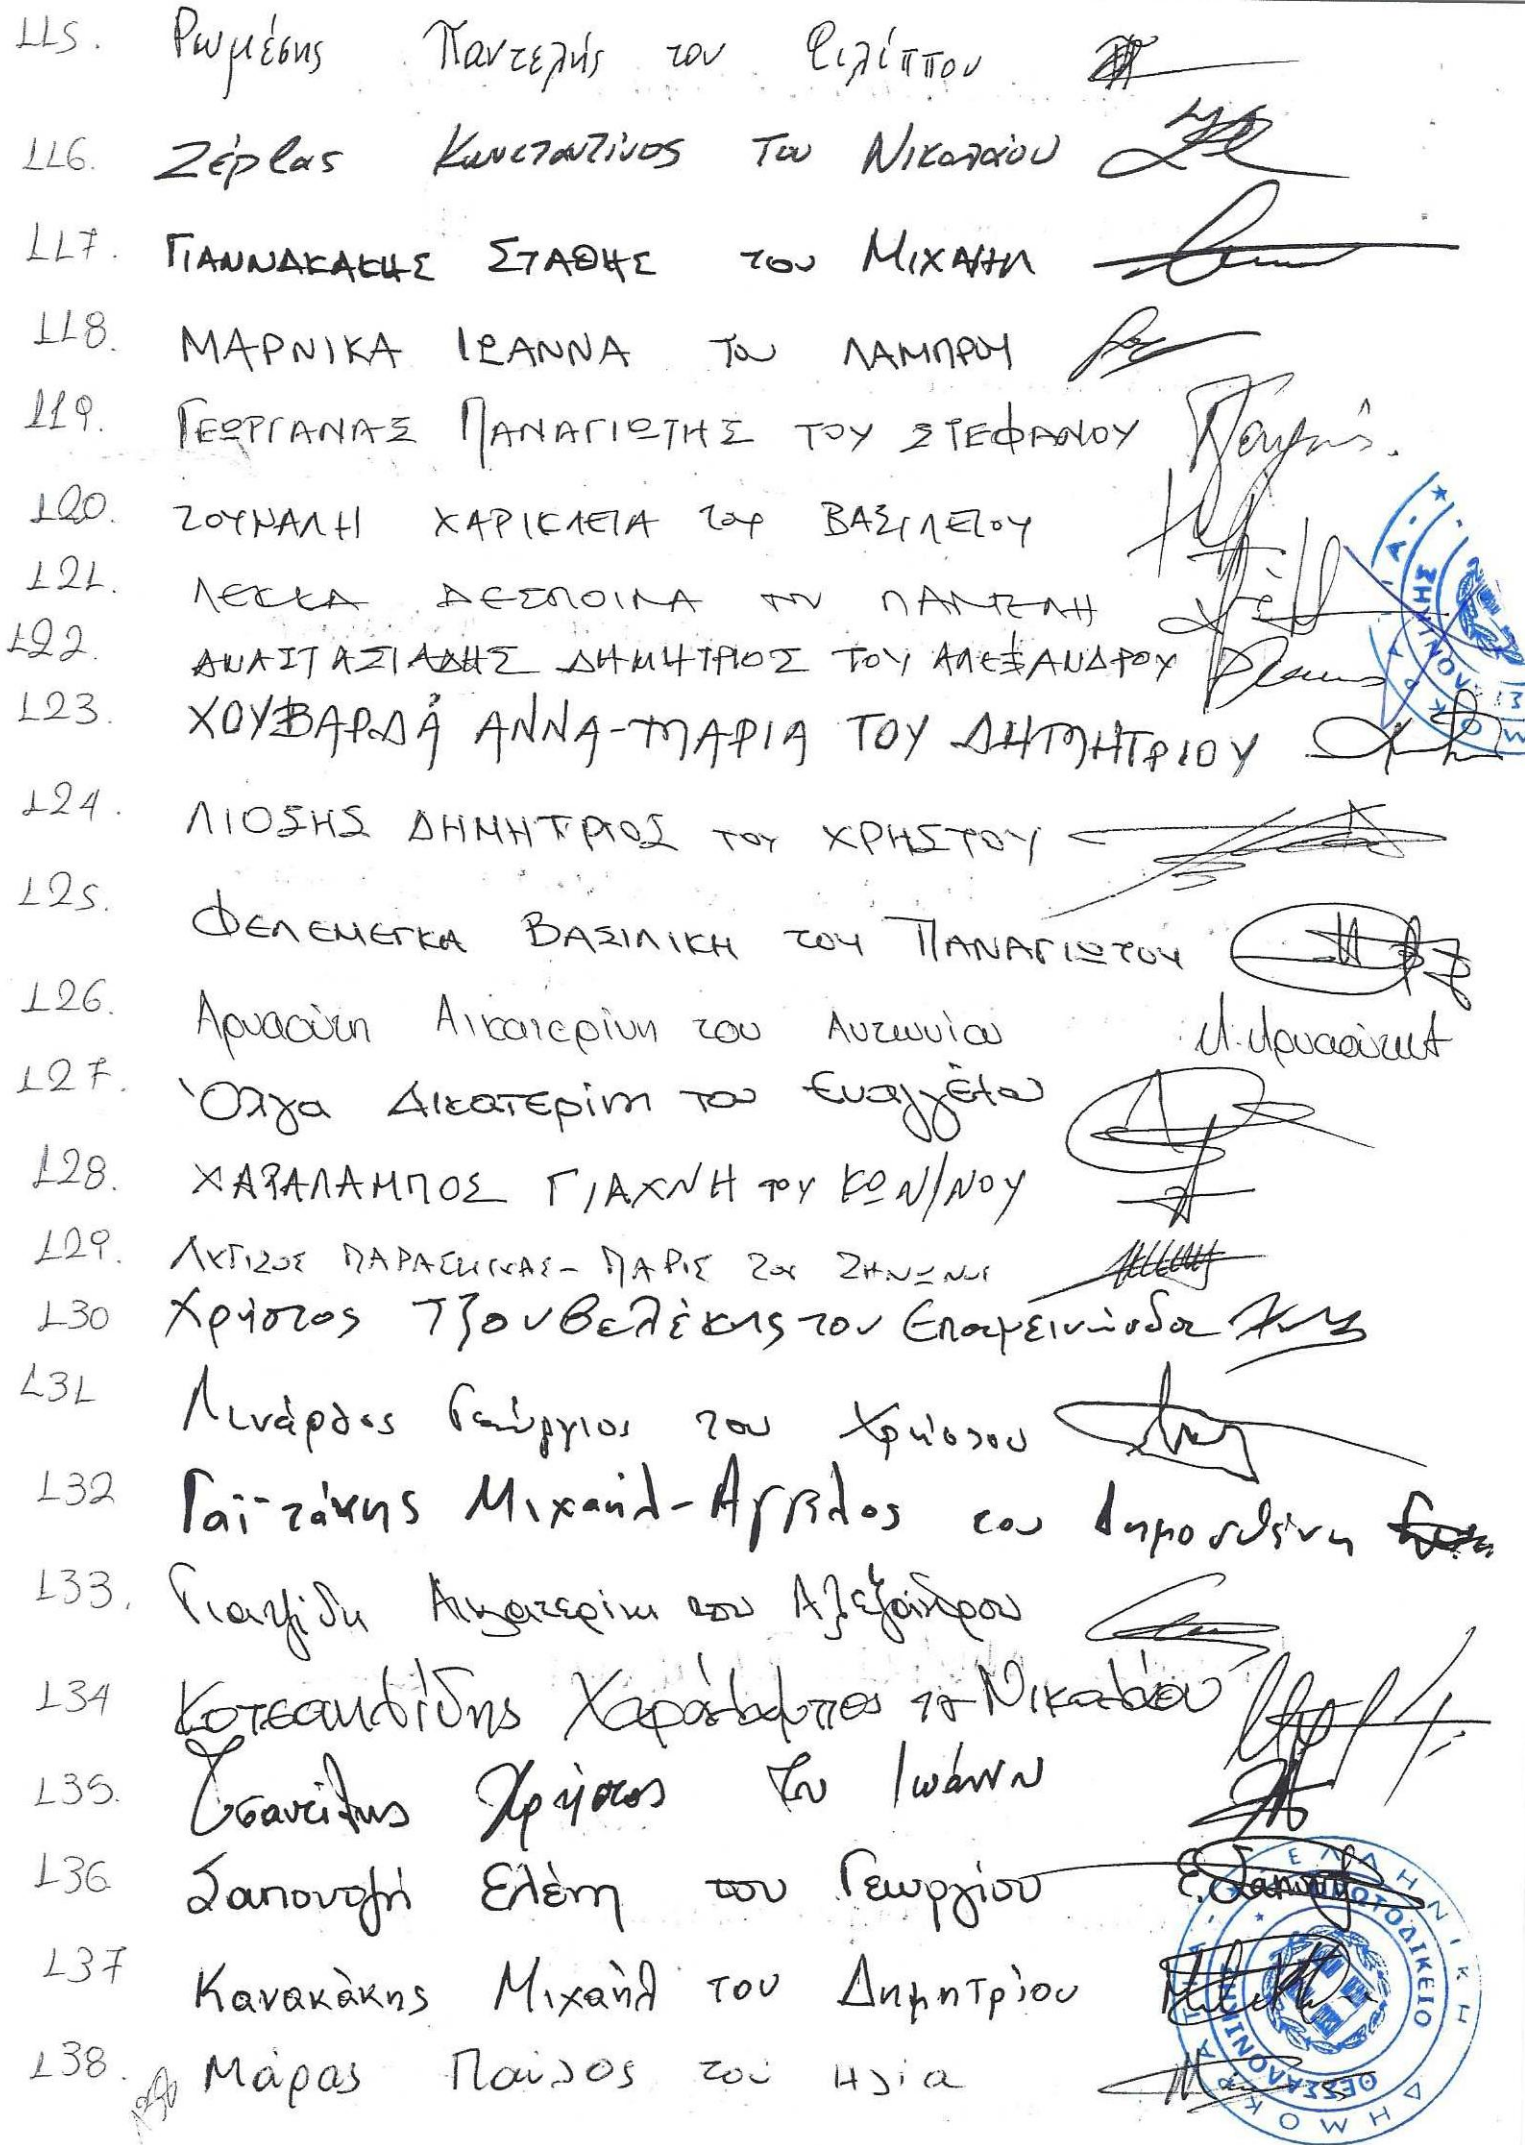 115. Ρωμέσης Παντελής του Φιλίππου
116. Ζέρβας Κωνσταντίνος του Νικολάου
117. ΓΙΑΝΝΑΚΑΚΗΣ ΣΤΑΘΗΣ του ΜΙΧΑΗΛ
118. ΜΑΡΝΙΚΑ ΙΩΑΝΝΑ του ΛΑΜΠΡΟΥ
119. ΓΕΩΡΓΑΝΑΣ ΠΑΝΑΓΙΩΤΗΣ ΤΟΥ ΣΤΕΦΑΝΟΥ
120. ΤΟΥΝΑΛΗ ΧΑΡΙΚΛΕΙΑ του ΒΑΣΙΛΕΙΟΥ
121. ΛΕΚΚΑ ΔΕΣΠΟΙΝΑ του ΠΑΝΤΕΛΗ
122. ΑΝΑΣΤΑΣΙΑΔΗΣ ΔΗΜΗΤΡΙΟΣ ΤΟΥ ΑΛΕΞΑΝΔΡΟΥ
123. ΧΟΥΒΑΡΔΑ ΑΝΝΑ-ΜΑΡΙΑ ΤΟΥ ΔΗΜΗΤΡΙΟΥ
124. ΛΙΟΣΗΣ ΔΗΜΗΤΡΙΟΣ του ΧΡΗΣΤΟΥ
125. ΦΕΛΕΜΕΓΚΑ ΒΑΣΙΛΙΚΗ του ΠΑΝΑΓΙΩΤΟΥ
126. Αικατερίνη του Αντωνίου
127. Όλγα Αικατερίνη του Ευαγγέλου
128. ΧΑΡΑΛΑΜΠΟΣ ΓΙΑΧΝΗ του ΚΩΝ/ΝΟΥ
129. ΠΑΡΑΣΚΕΥΑΣ-ΠΑΡΙΣ του ΖΗΝΩΝΟΣ
130 Χρήστος Τζουβελέκης του Επαμεινώνδα
131 Λινάρδος Γεώργιος του Χρήστου
132 Γαϊτάκης Μιχαήλ-Άγγελος του Δημοσθένη
133. Γιαγτζίδη Αικατερίνη του Αλεξάνδρου
134 Κοτσαηλίδης Χαράλαμπος του Νικολάου
135. Τσαντίλης Χρήστος του Ιωάννη
136 Σαπουντζή Ελένη του Γεωργίου
137 Κανακάκης Μιχαήλ του Δημητρίου
138. Μάρας Παύλος του Ηλία
ΕΛΛΗΝΙΚΗ ΔΗΜΟΚΡΑΤΙΑ
ΠΡΩΤΟΔΙΚΕΙΟ ΘΕΣΣΑΛΟΝΙΚΗΣ